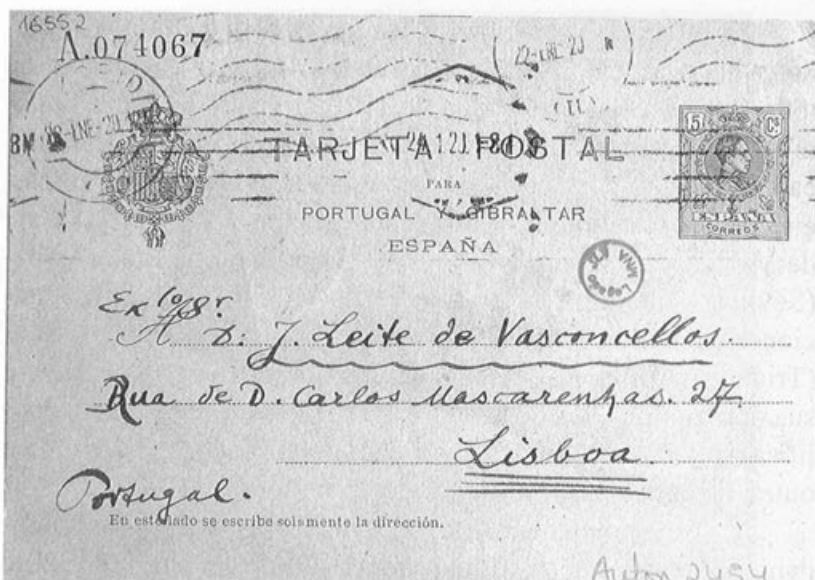 16552
A.074067
22-ENE-20
8M 22-ENE-20
15 Cs
TARJETA POSTAL
PARA
PORTUGAL Y GIBRALTAR
ESPAÑA
ESPAÑA
CORREOS
MNA
Legado
Ex Sr.
A D: J. Leite de Vasconcellos.
Rua de D. Carlos Mascarenhas. 27
Lisboa.
Portugal.
En este lado se escribe solamente la dirección.